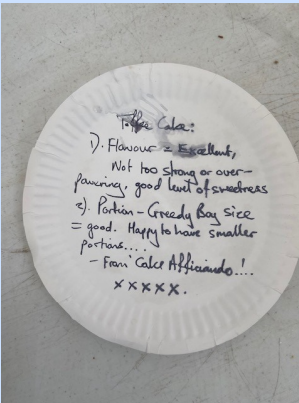 Toffee Cake:
1). Flavour = Excellent,
Not too strong or over-
powering, good level of sweetness
2). Portion - Greedy Boy size
= good. Happy to have smaller
portions....
- From 'Cake Afficiando!...
xxxxx.